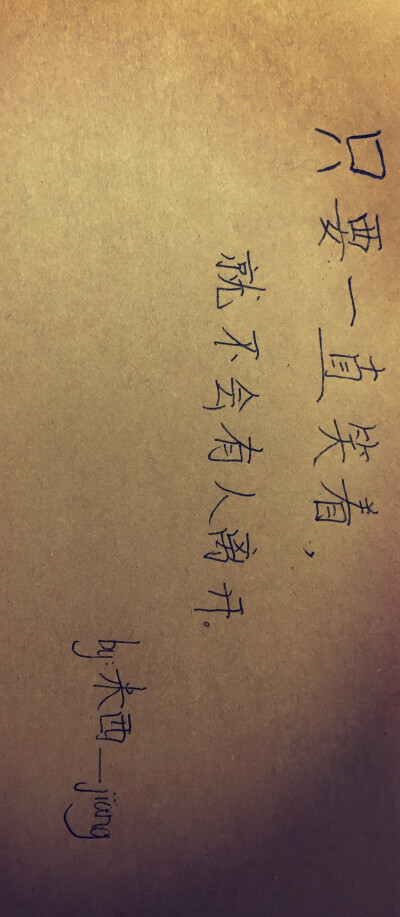 只要一直笑着，
就不会有人离开。
by:木西_jiang